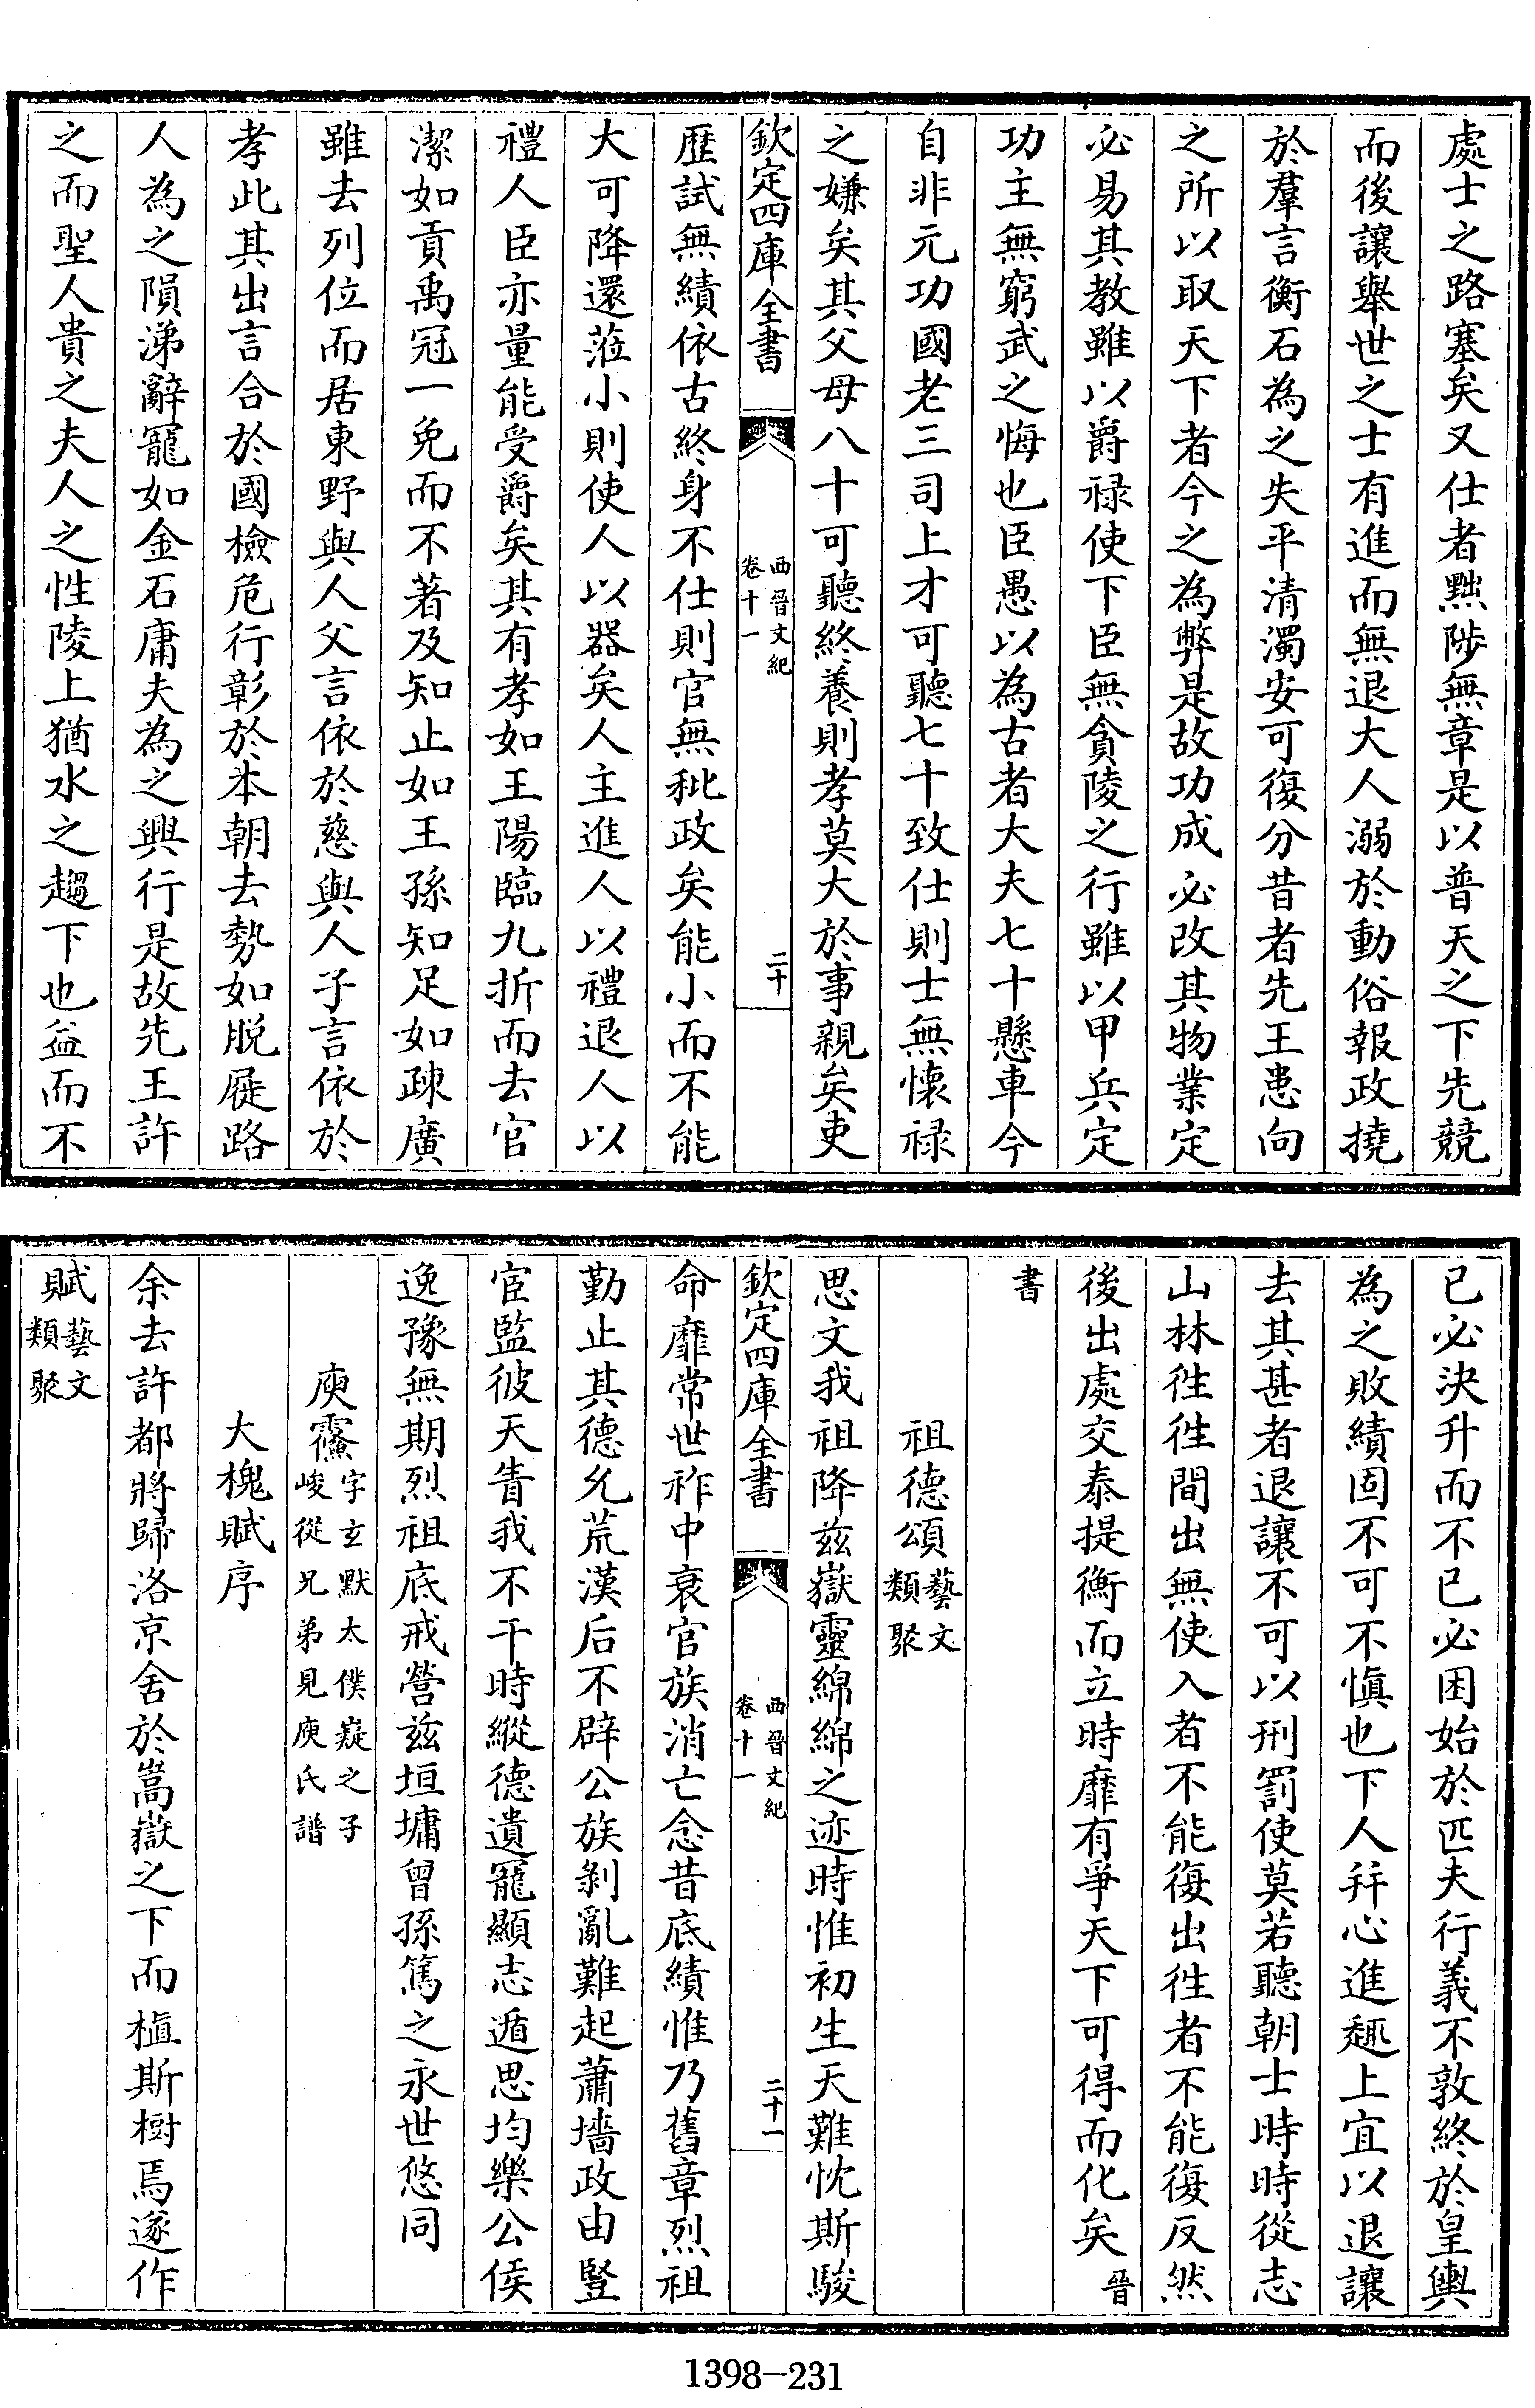 處士之路塞矣又仕者黜陟無章是以普天之下先競
而後讓舉世之士有進而無退大人溺於動俗報政撓
於羣言衡石為之失平清濁安可復分昔者先王患向
之所以取天下者今之為弊是故功成必改其物業定
必易其教雖以爵禄使下臣無貪陵之行雖以甲兵定
功主無窮武之悔也臣愚以為古者大夫七十懸車今
自非元功國老三司上才可聽七十致仕則士無懷禄
之嫌矣其父母八十可聽終養則孝莫大於事親矣吏
欽定四庫全書
西晉文紀
卷十一
二十
歴試無績依古終身不仕則官無秕政矣能小而不能
大可降還蒞小則使人以器矣人主進人以禮退人以
禮人臣亦量能受爵矣其有孝如王陽臨九折而去官
潔如貢禹冠一免而不著及知止如王孫知足如疎廣
雖去列位而居東野與人父言依於慈與人子言依於
孝此其出言合於國檢危行彰於本朝去勢如脱屣路
人為之隕涕辭寵如金石庸夫為之興行是故先王許
之而聖人貴之夫人之性陵上猶水之趨下也益而不
已必決升而不已必困始於匹夫行義不敦終於皇輿
為之敗績固不可不慎也下人幷心進趣上宜以退讓
去其甚者退讓不可以刑罰使莫若聽朝士時時從志
山林徃徃間出無使入者不能復出徃者不能復反然
後出處交泰提衡而立時靡有爭天下可得而化矣晉
書
祖德頌藝文
類聚
思文我祖降兹嶽靈綿綿之迹時惟初生天難忱斯駿
欽定四庫全書
西晉文紀
卷十一
二十一
命靡常世祚中衰官族消亡念昔底績惟乃舊章烈祖
勤止其德允荒漢后不辟公族剝亂難起蕭墻政由豎
宦監彼天眚我不干時縱德遺寵顯志遁思均樂公侯
逸豫無期烈祖底戒營兹垣墉曾孫篤之永世悠同
庾鯈字玄默太僕嶷之子
峻從兄弟見庾氏譜
大槐賦序
余去許都將歸洛京舍於嵩嶽之下而植斯樹焉遂作
賦藝文
類聚
1398-231